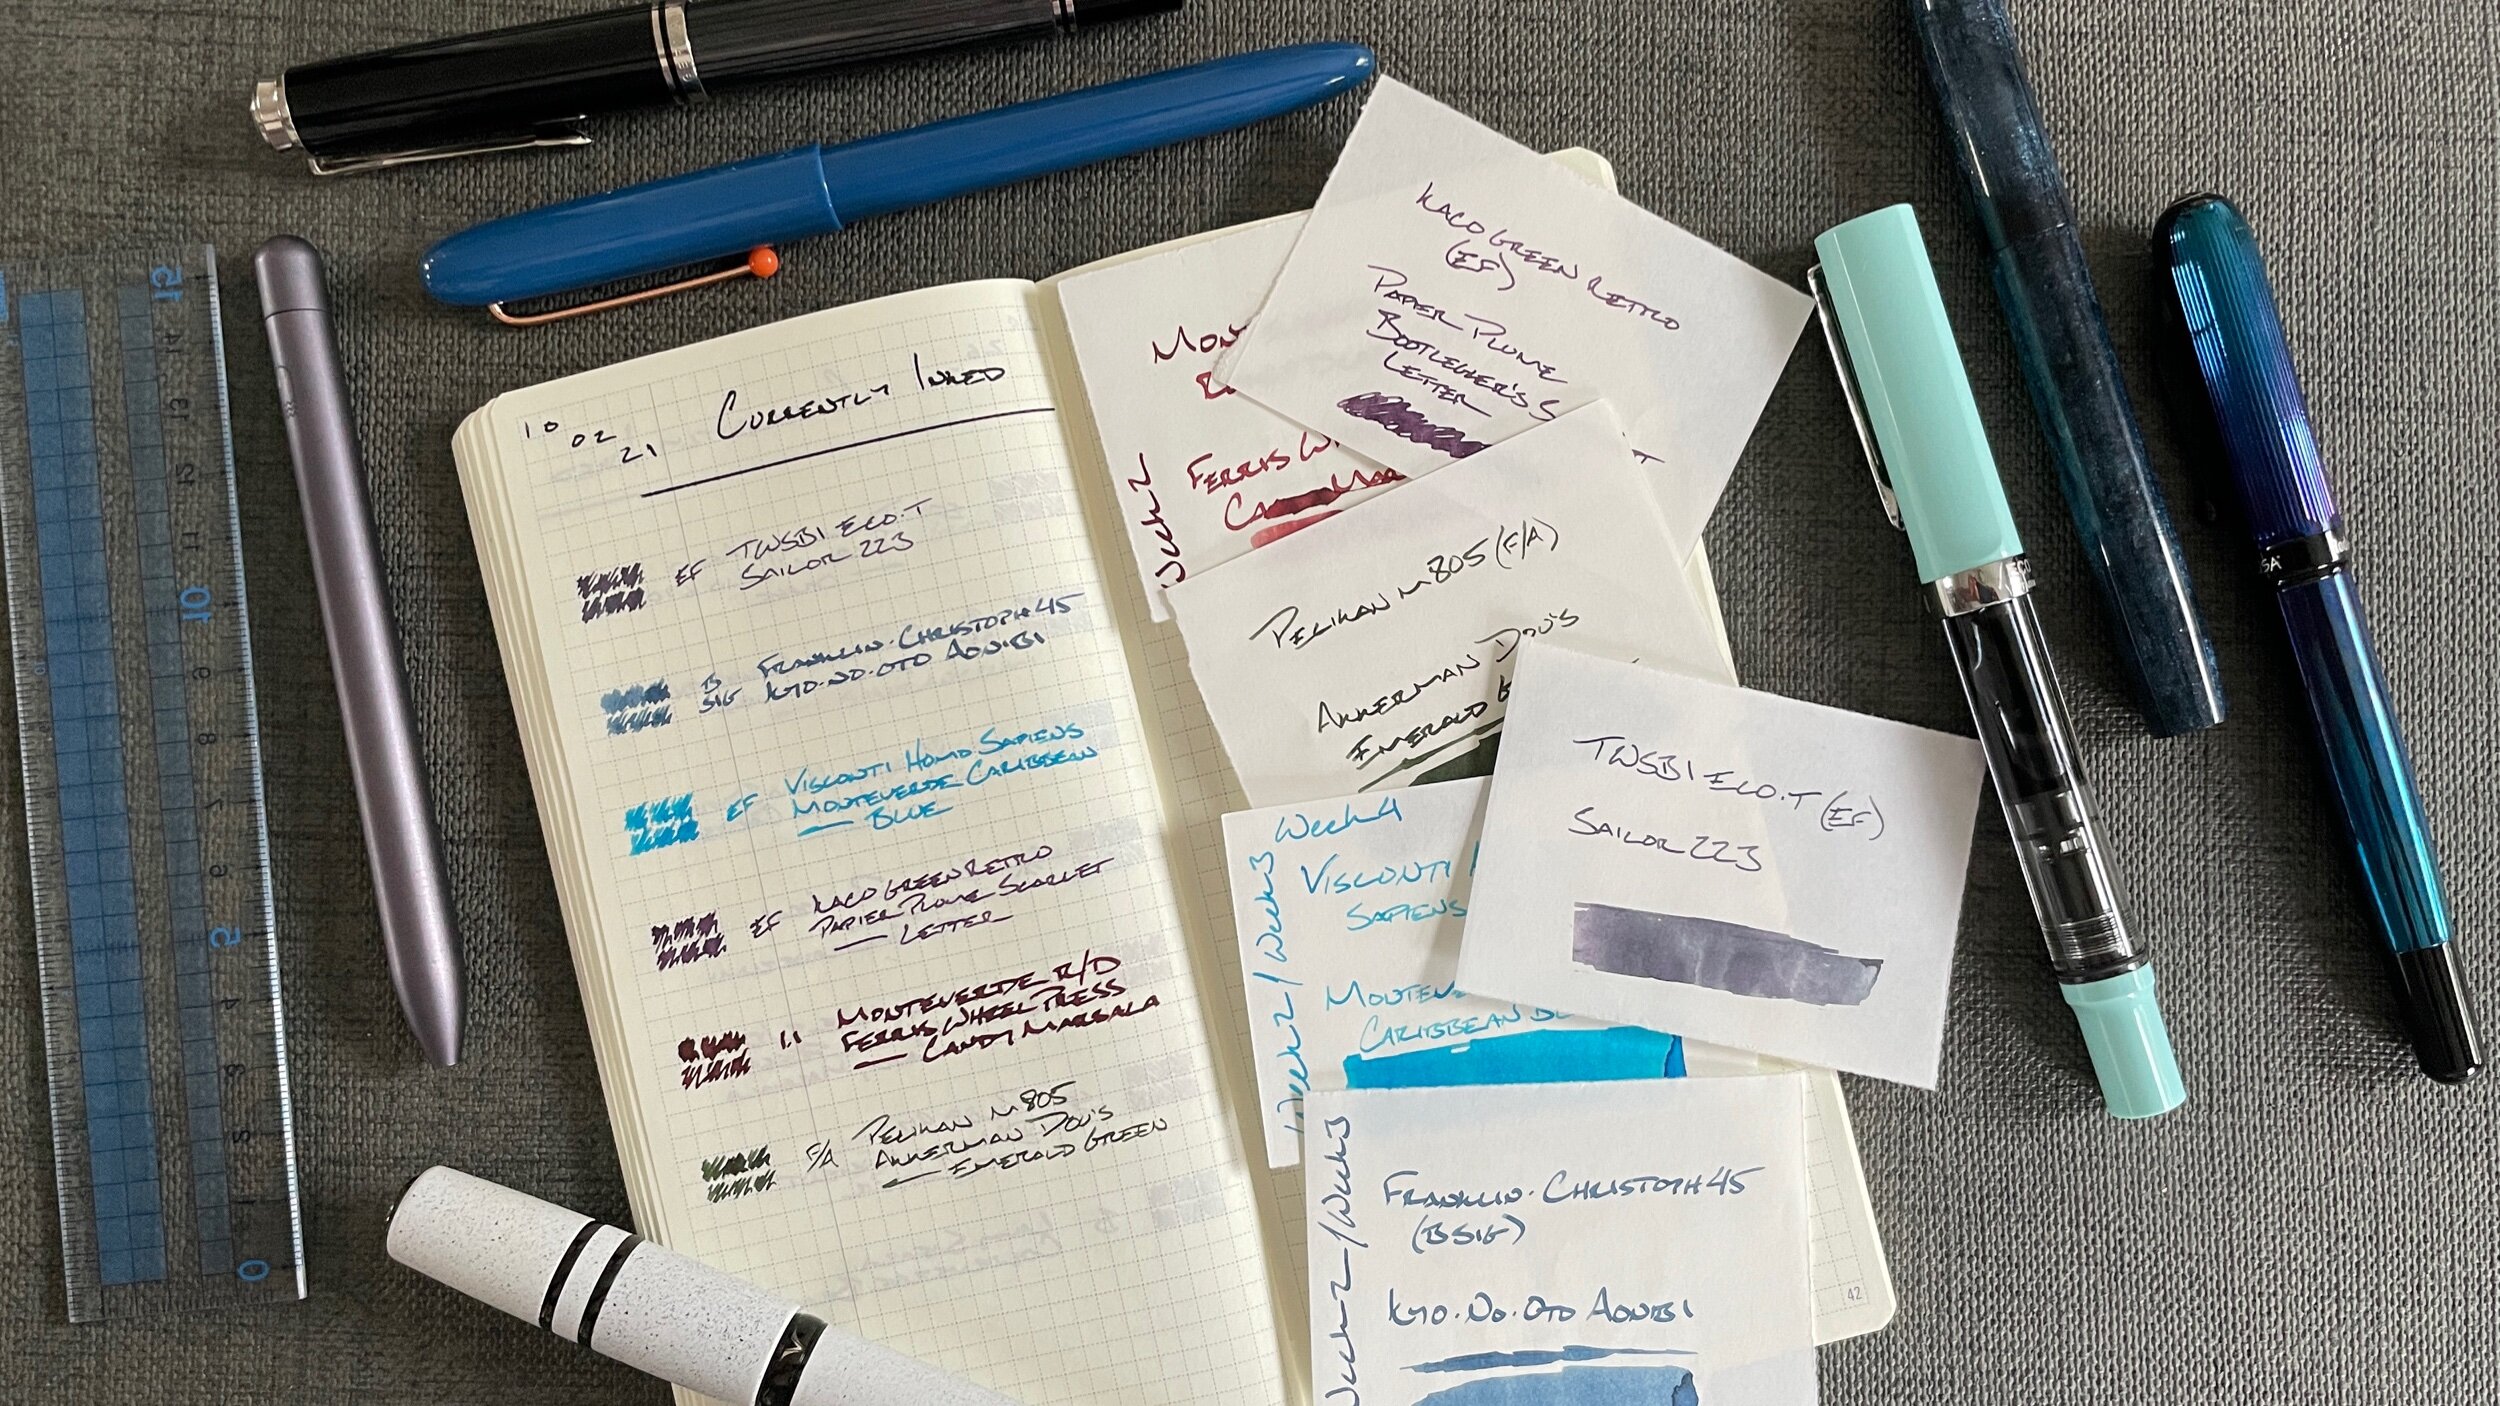 10
02
21
Currently Inked
EF TWSBI ECO.T
Sailor 223
B
SIG
Franklin.Christoph 45
Kyo.No.Oto Aonibi
EF Visconti Homo Sapiens
Monteverde Caribbean
Blue
EF Kaco Green Retro
Papier Plume Scarlet
Letter
1.1 Monteverde R/D
Ferris Wheel Press
Candy Marsala
F/A Pelikan M805
Akkerman Dou's
Emerald Green
Kaco Green Retro
(EF)
Papier Plume
Bootlegger's S
Letter
Week 2
Mon
Ferris W
Ca Mar
Pelikan M805 (F/A)
Akkerman Dou's
Emerald G
TWSBI ECO.T (EF)
Sailor 223
Week 4
Week 2/Week 3
Visconti
Sapiens
Monteve
Caribbean Bl
Week 2/Week 3
Franklin.Christoph 45
(B SIG)
Kyo.No.Oto Aonibi
42
15
14
13
12
11
10
9
8
7
6
5
4
3
2
1
0
ECO
SA